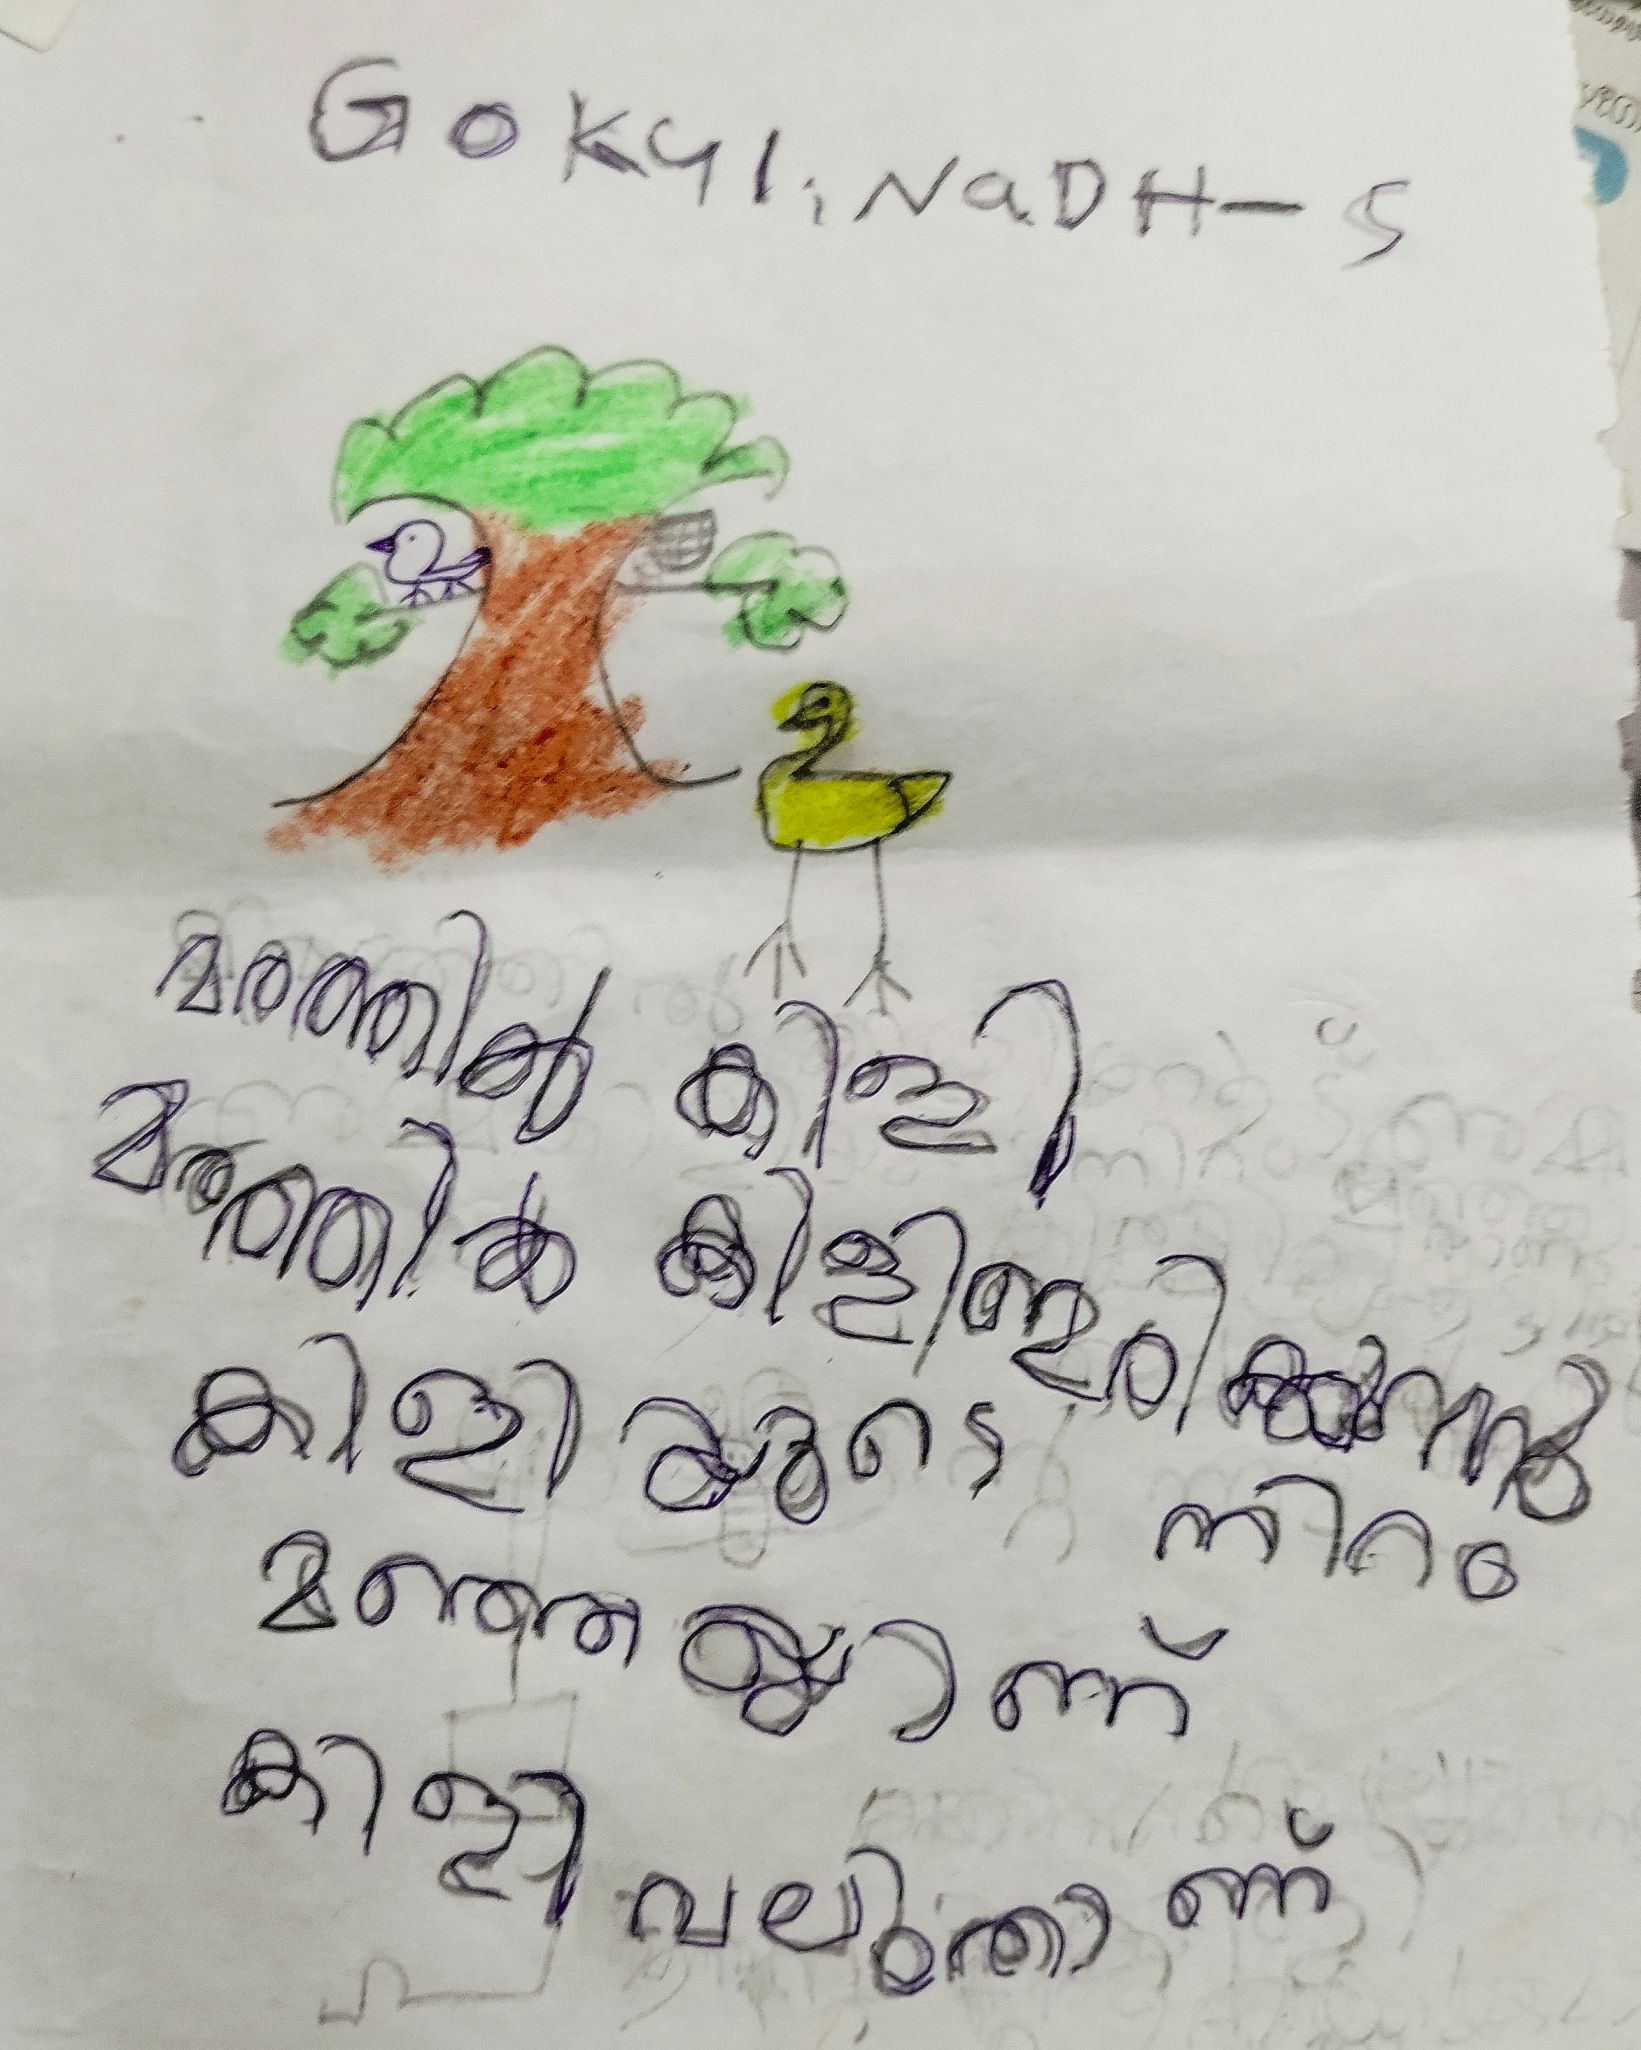 GoKul. NaDH-5
മരത്തിൽ കിളി
മരത്തിൽ കിളി ഇരിക്കുന്നു
കിളിയുടെ നിറം
മഞ്ഞയാണ്
കിളി വലുതാണ്